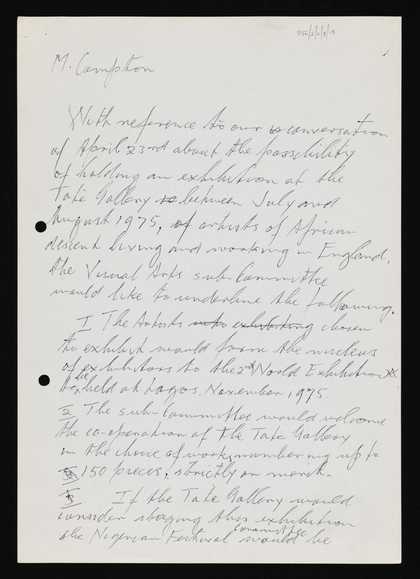 M. Compton
With reference to our conversation
of April 23rd about the possibility
of holding an exhibition at the
Tate Gallery between July and
August 1975, of artists of African
descent living and working in England,
the Visual Arts sub-Committee
would like to underline the following.
I The Artists exhibiting chosen
to exhibit would form the nucleus
of exhibitors to the 2nd World Exhibition
to be held at Lagos, November 1975
II The sub-Committee would welcome
the co-operation of the Tate Gallery
in the choice of work, numbering up to
150 pieces, strictly on merit.
If the Tate Gallery would
consider staging this exhibition
the Nigerian Festival Committee would be